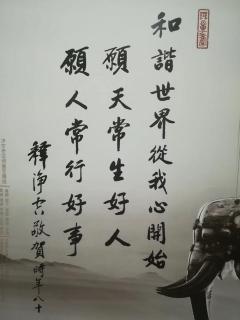 和諧世界從我心開始
願天常生好人
願人常行好事
釋淨空敬賀 時年八十